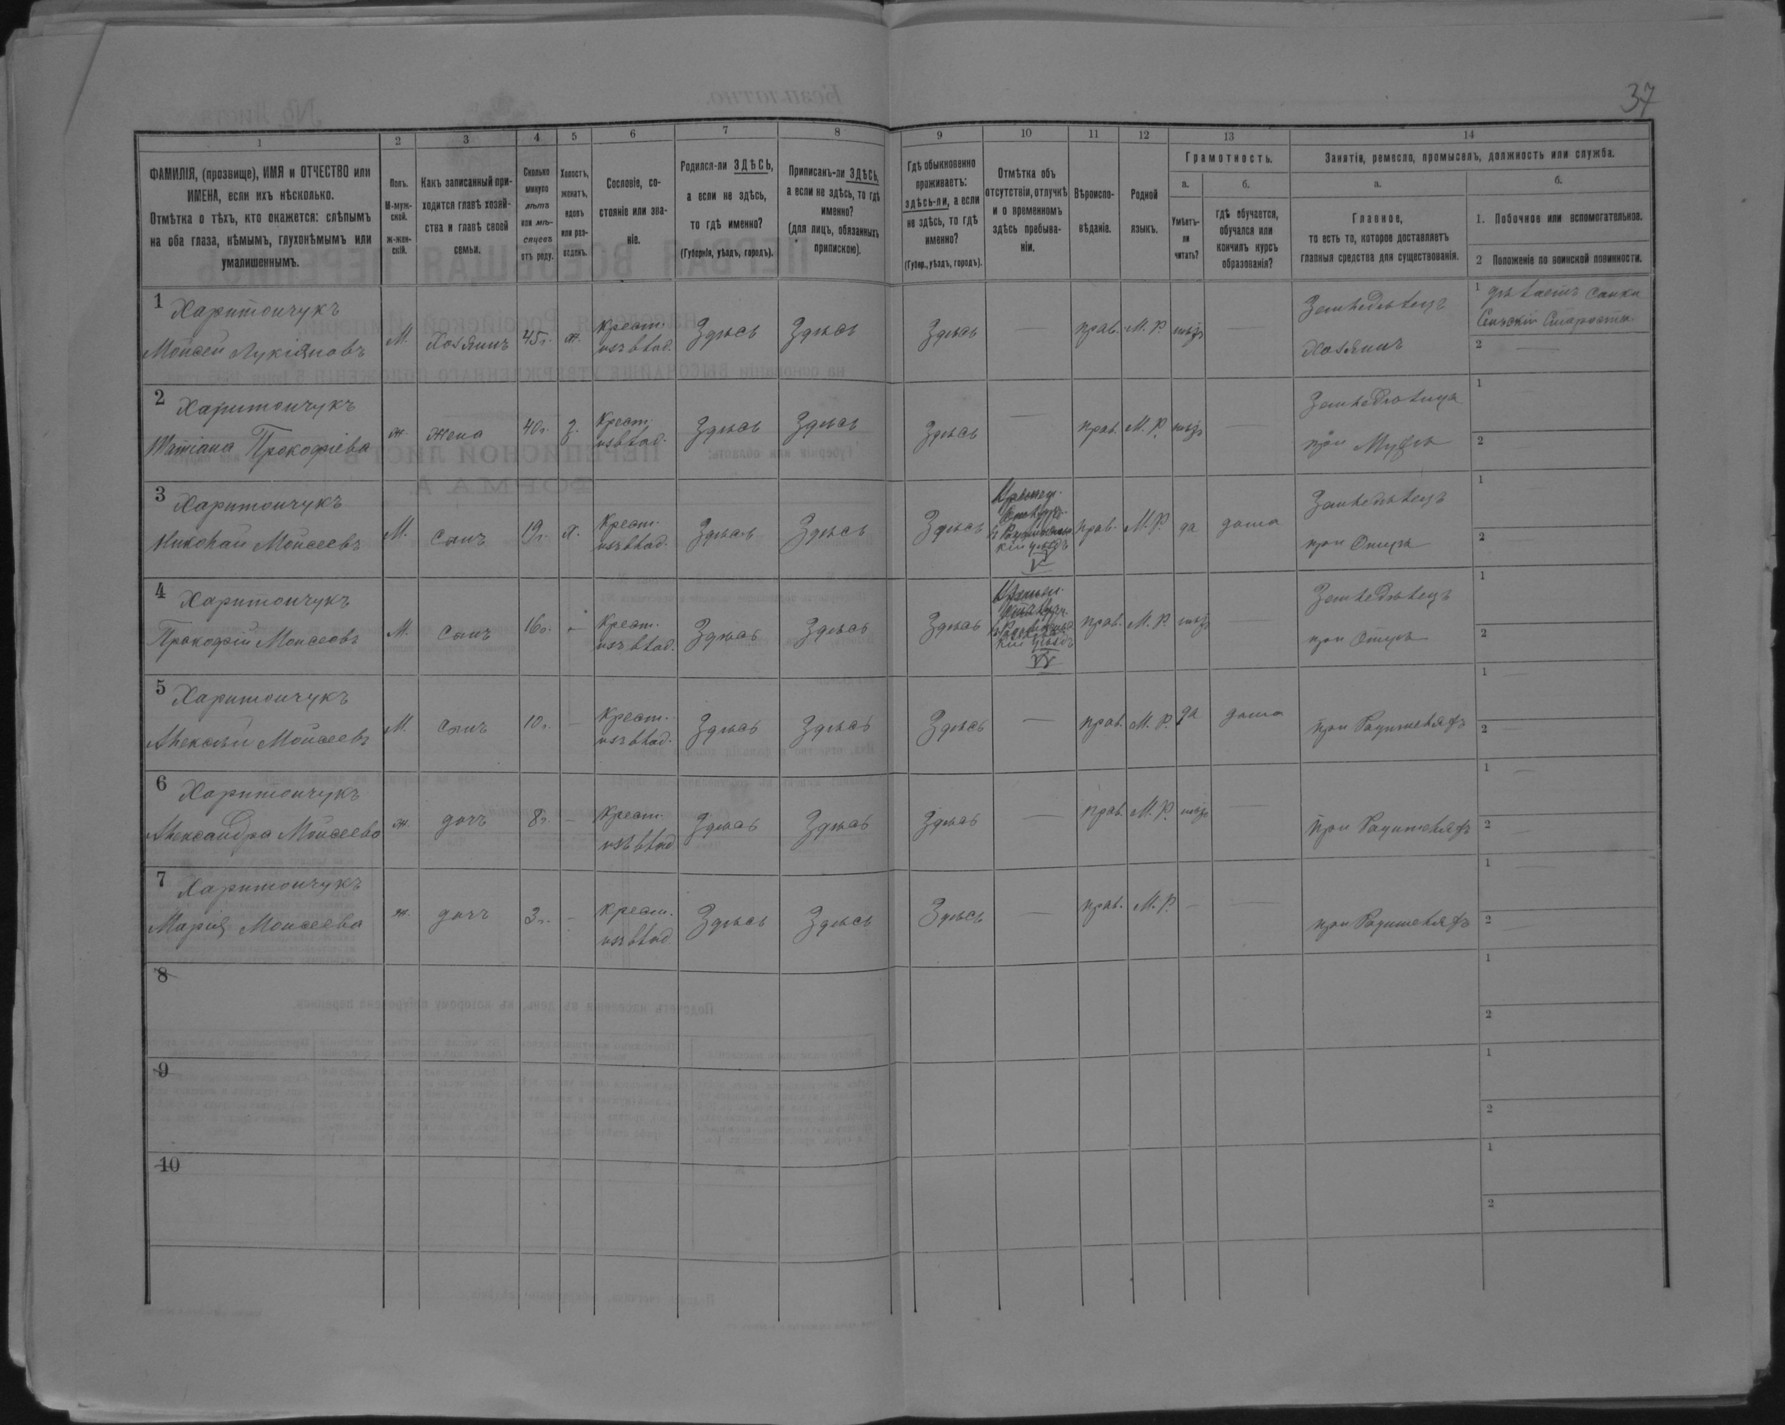 37
1
2
3
4
5
6
7
8
9
10
11
12
13
14
ФАМИЛІЯ, (прозвище), ИМЯ и ОТЧЕСТВО или
ИМЕНА, если ихъ нѣсколько.
Отмѣтка о тѣхъ, кто окажется: слѣпымъ
на оба глаза, нѣмымъ, глухонѣмымъ или
умалишеннымъ.
Полъ.
М-муж-
ской.
ж-жен-
скій.
Какъ записанный при-
ходится главѣ хозяй-
ства и главѣ своей
семьи.
Сколько
минуло
лѣтъ
или мѣ-
сяцевъ
отъ роду.
Холостъ,
женатъ,
вдовъ
или раз-
веденъ.
Сословіе, со-
стояніе или зва-
ніе.
Родился-ли ЗДѢСЬ,
а если не здѣсь,
то гдѣ именно?
(Губернія, уѣздъ, городъ).
Приписанъ-ли ЗДѢСЬ,
а если не здѣсь, то гдѣ
именно?
(для лицъ, обязанныхъ
припискою).
Гдѣ обыкновенно
проживаетъ:
здѣсь-ли, а если
не здѣсь, то гдѣ
именно?
(Губер., уѣздъ, городъ).
Отмѣтка объ
отсутствіи, отлучкѣ
и о временномъ
здѣсь пребыва-
ніи.
Вѣроиспо-
вѣданіе.
Родной
языкъ.
Грамотность.
а.
Умѣетъ-
ли
читать?
б.
гдѣ обучается,
обучался или
кончилъ курсъ
образованія?
Занятіе, ремесло, промыселъ, должность или служба.
а.
Главное,
то есть то, которое доставляетъ
главныя средства для существованія.
б.
1. Побочное или вспомогательное.
2 Положеніе по воинской повинности.
1 Харитончукъ
Моисей Лукіяновъ
М. Хозяинъ 45 г. ж. Крест. изъ влад. Здѣсь Здѣсь Здѣсь — прав. М. Р. нѣтъ —
Земледѣлецъ
Хозяинъ
1 дѣлаетъ Санки
Сельскій Староста
2 —
2 Харитончукъ
Татіана Прокофіева
ж. жена 40 г. з. Крест. изъ влад. Здѣсь Здѣсь Здѣсь — прав. М. Р. нѣтъ —
Земледѣлица
при Мужѣ
1 —
2 —
3 Харитончукъ
Николай Моисеевъ
М. сынъ 19 г. х. Крест. изъ влад. Здѣсь Здѣсь Здѣсь
прав. М. Р. да дома
Земледѣлецъ
при Отцѣ
1 —
2 —
4 Харитончукъ
Прокофій Моисеевъ
М. сынъ 16 г. — Крест. изъ влад. Здѣсь Здѣсь Здѣсь
прав. М. Р. нѣтъ —
Земледѣлецъ
при Отцѣ
1 —
2 —
5 Харитончукъ
Алексѣй Моисеевъ
М. сынъ 10 г. — Крест. изъ влад. Здѣсь Здѣсь Здѣсь — прав. М. Р. да дома
при Родителяхъ
1 —
2 —
6 Харитончукъ
Александра Моисеева
ж. дочь 8 г. — Крест. изъ влад. Здѣсь Здѣсь Здѣсь — прав. М. Р. нѣтъ —
при Родителяхъ
1 —
2 —
7 Харитончукъ
Марія Моисеева
ж. дочь 3 г. — Крест. изъ влад. Здѣсь Здѣсь Здѣсь — прав. М. Р. — —
при Родителяхъ
1 —
2 —
8
1
2
9
1
2
10
1
2